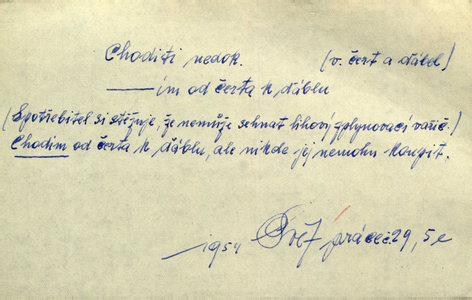 Choditi nedok. (v. čert a ďábel)
—ím od čerta k ďáblu
(Spotřebitel si stěžuje, že nemůže sehnat lihový zplynovací vařič.)
Chodím od čerta k ďáblu, ale nikde jej nemohu koupit.
1954 Svět práce č. 29, 5e